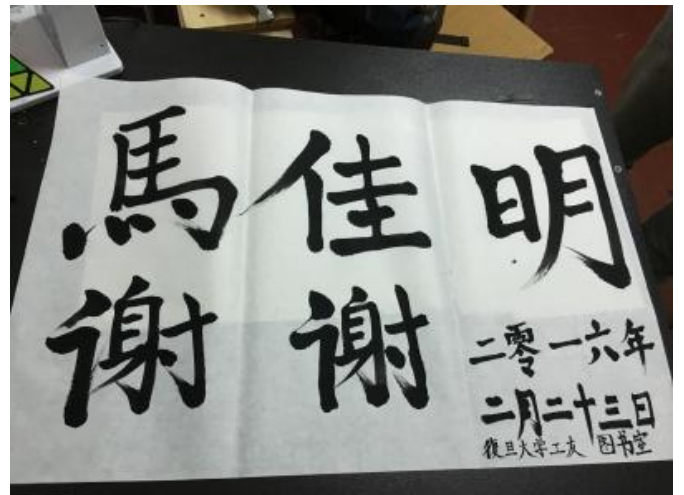 馬佳明
谢谢
二零一六年
二月二十三日
復旦大学工友 图书室